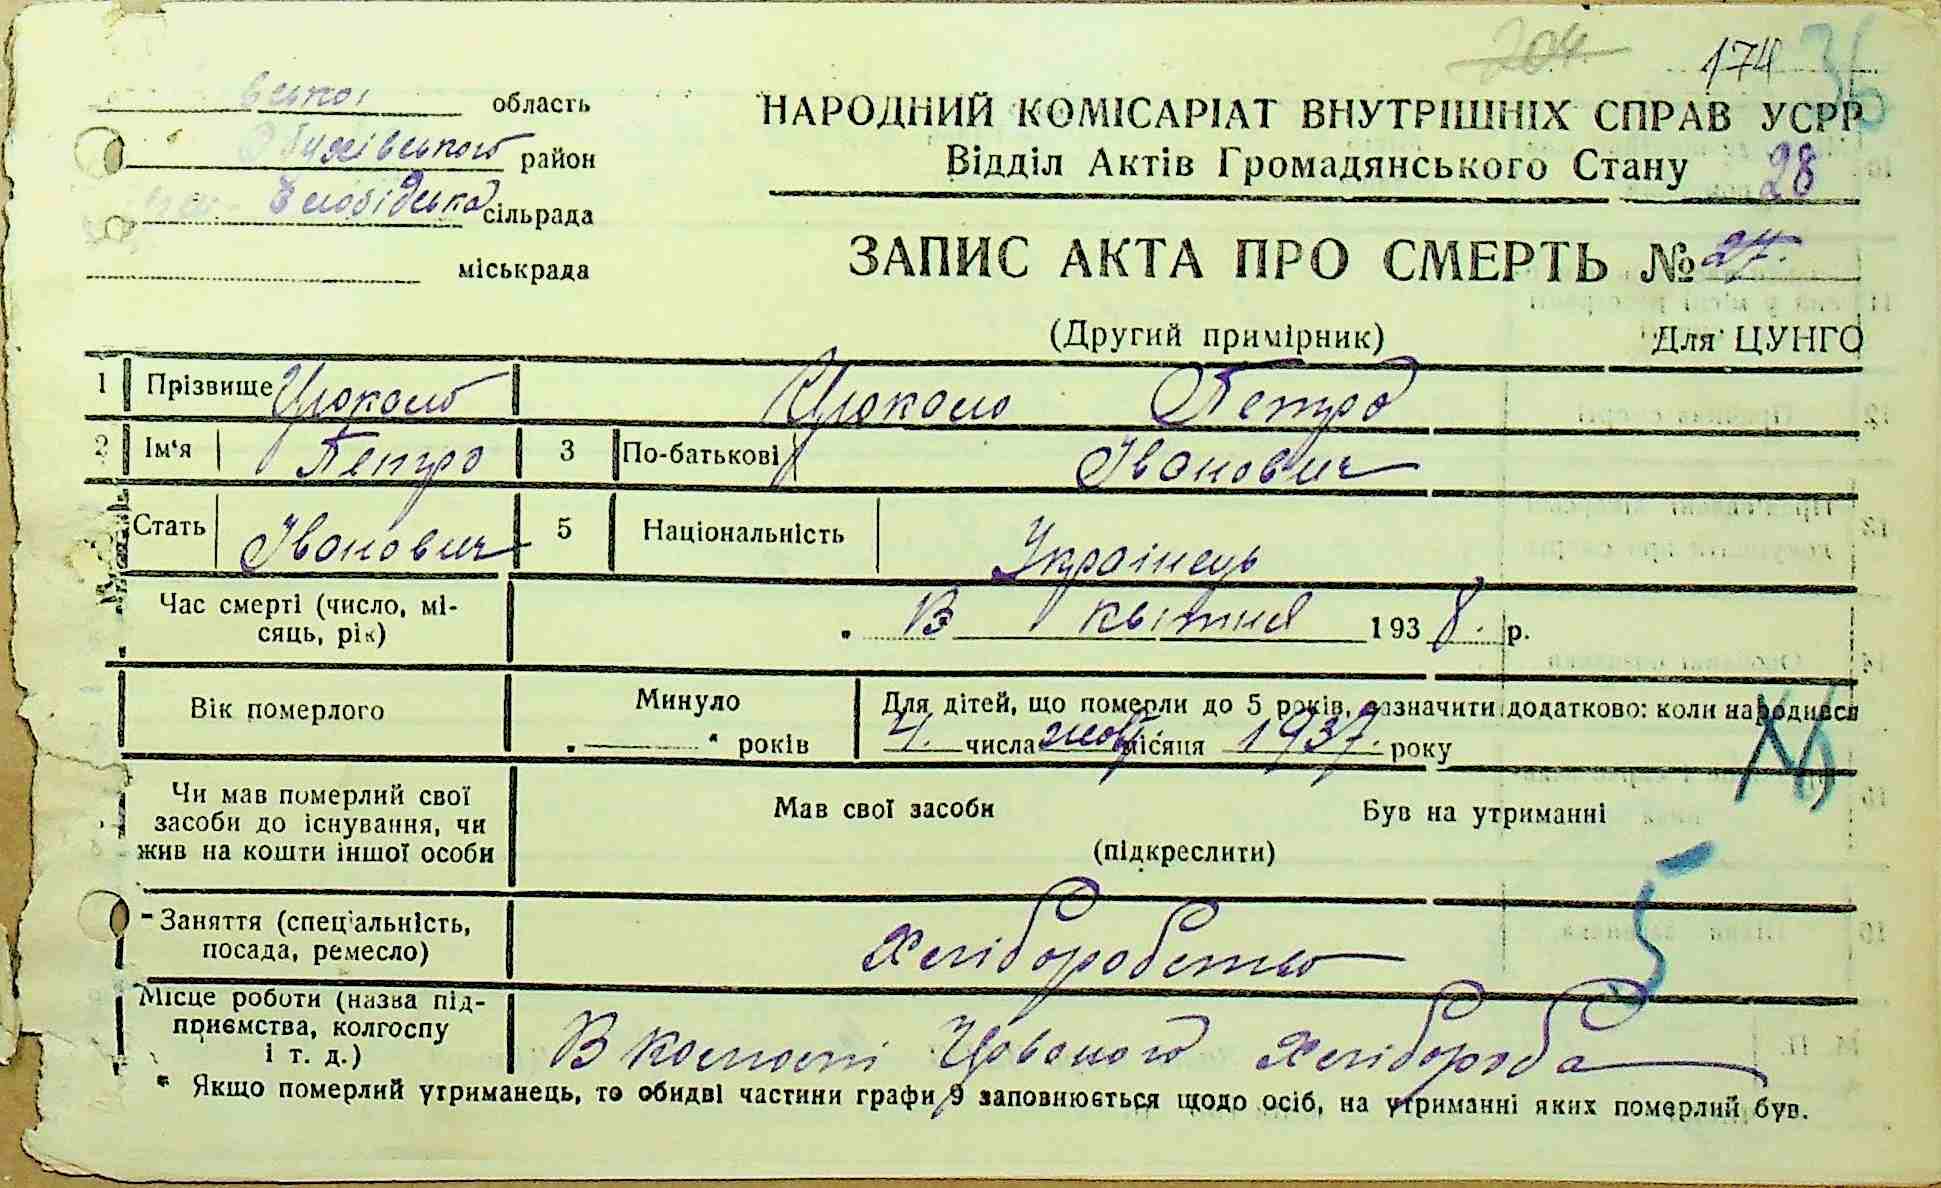 204. 174 36
область
НАРОДНИЙ КОМІСАРІАТ ВНУТРІШНІХ СПРАВ УСРР
Обухівського район
Відділ Актів Громадянського Стану 28
Слобідська сільрада
міськрада
ЗАПИС АКТА ПРО СМЕРТЬ № 27.
(Другий примірник) Для ЦУНГО
1 Прізвище Цюкало Цюкало Петро
2 Ім'я Петро 3 По-батькові Іванович
Стать Іванович 5 Національність Українець
Час смерті (число, мі-
сяць, рік)
13 квітня 1938. р.
Вік померлого
Минуло
років
Для дітей, що померли до 5 років, зазначити додатково: коли народився
4. числа жовт. місяця 1937. року
Чи мав померлий свої
засоби до існування, чи
жив на кошти іншої особи
Мав свої засоби Був на утриманні
(підкреслити)
5
Заняття (спеціальність,
посада, ремесло)
Хліборобство
Місце роботи (назва під-
приємства, колгоспу
і т. д.)
В колгоспі Червоного Хлібороба
* Якщо померлий утриманець, то обидві частини графи 9 заповнюється щодо осіб, на утриманні яких померлий був.